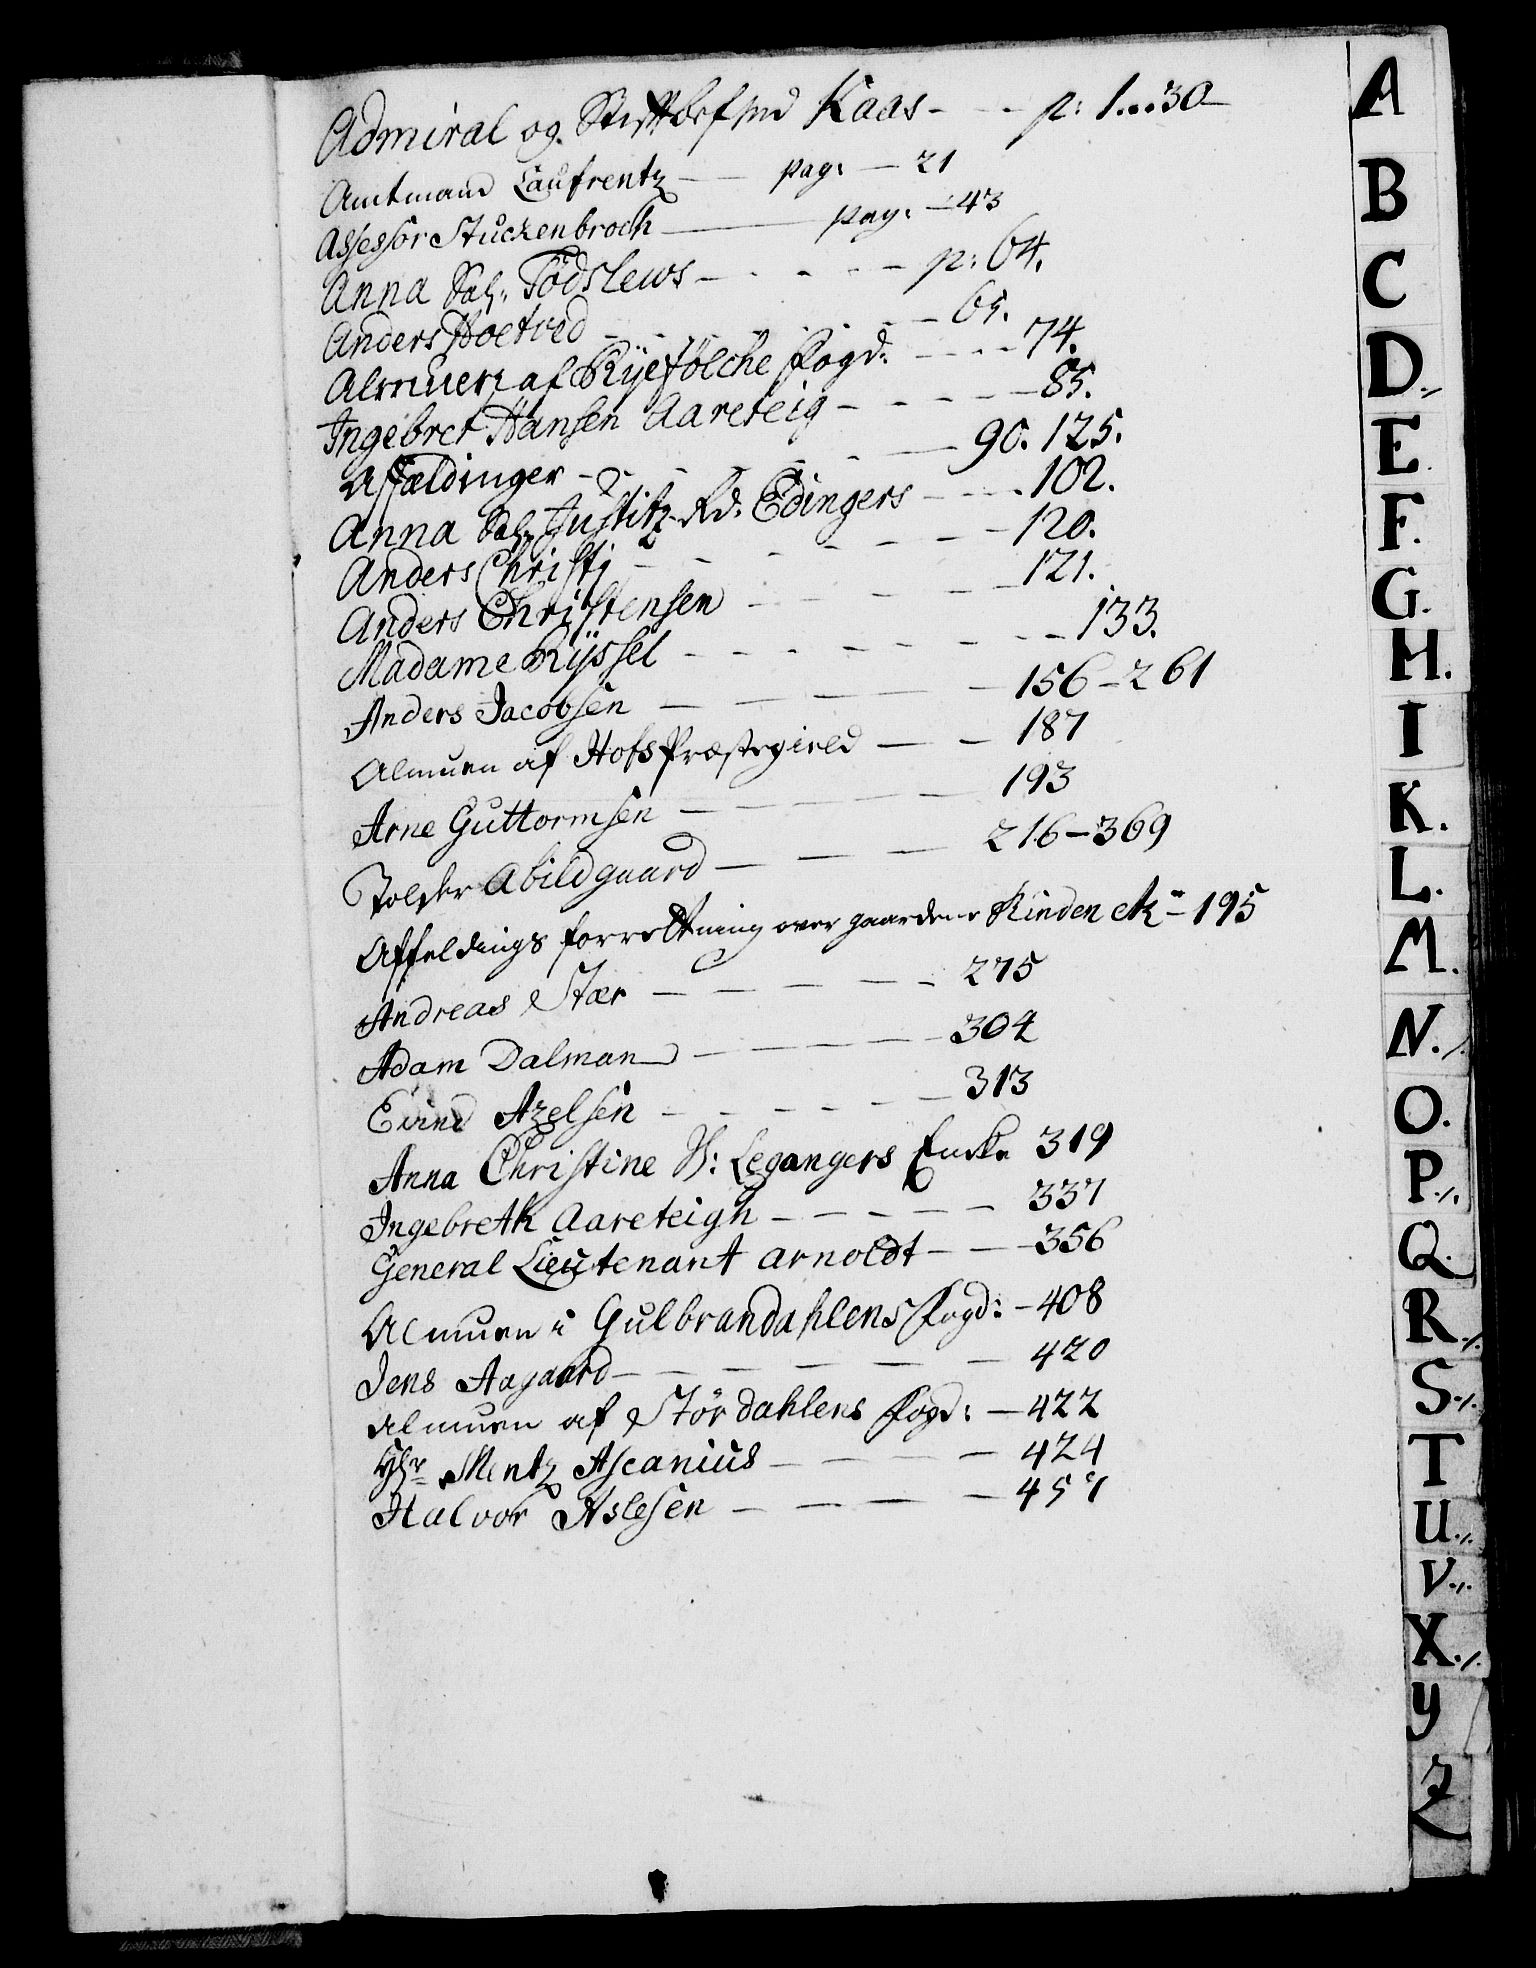 Admiral og Stiftbefhd Kaas - - - p: 1...30
Amtmand Laufrentz — pag: — 21
Assessor Stuckenbroch — pag: — 43
Anna Sal: Tödslews - - - - p: 64.
Anders Hoetved - - - - - 65.
Almuen af Ryefölche Fogd: - - - - 74.
Ingebret Hansen Aareteig - - - - - 85.
Affældinger - - - - - 90. 125.
Anna Sal: Justitz Rd: Edingers - - - 102.
Anders Christj - - - - - - 120.
Anders Christensen - - - - - 121.
Madame Rÿssel - - - - - - 133.
Anders Jacobsen - - - - - 156 - 261
Almuen af Hofs Præstegield — — 187
Arne Guttormsen - - - - - 193
Tolder Abildgaard — — — 216 - 369
Affeldings forretning over gaardene Rinden etc - 195
Andreas Stær - - - - - 275
Adam Dalmand - - - - - 304
Eivind Axelsen - - - - - 313
Anna Christine S: Legangers Encke 319
Ingebreth Aareteigh - - - - - 337
General Lieutenant Arnoldt - - - 356
Almuen i Gulbrandahlens Fogd: - 408
Jens Aagaard - - - - - 420
Almuen af Stördahlens Fogd: — 422
Hr Mentz Ascanius - - - - - 424
Halvor Aslesen - - - - - 457
A
B
C
D./.
E.
F.
G.
H.
I
K.
L.
M.
N./.
O.
P./.
Q.
R./.
S./.
T
U./.
V./.
X./.
Y
Z